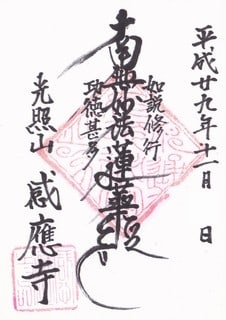 平成廿九年十一月　日
如説修行
南無妙法蓮華経
功徳甚多
光照山　感應寺